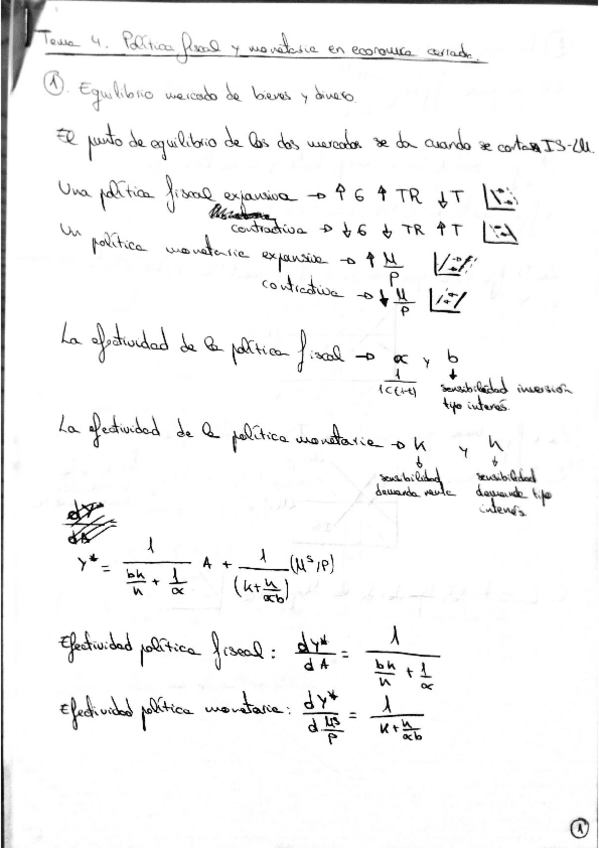 Tema 4. Política fiscal y monetaria en economía cerrada.
① Equilibrio mercado de bienes y dinero.
El punto de equilibrio de los dos mercados se da cuando se cortan IS-LM.
Una política fiscal expansiva → ↑ G ↑ TR ↓ T
contractiva → ↓ G ↓ TR ↑ T
Un política monetaria expansiva → ↑ M/P
contractiva → ↓ M/P
La efectividad de la política fiscal → α y b
1 / 1-c(1-t) ↓ sensibilidad inversión
tipo interés.
La efectividad de la política monetaria → k y h
↓ sensibilidad demanda renta ↓ sensibilidad demanda tipo interés
dY / dA
Y* = 1 / (bk/h + 1/α) A + 1 / (k + h/αb) (Mˢ/P)
Efectividad política fiscal: dY*/dA = 1 / (bk/h + 1/α)
Efectividad política monetaria: dY* / d Mˢ/P = 1 / (k + h/αb)
①